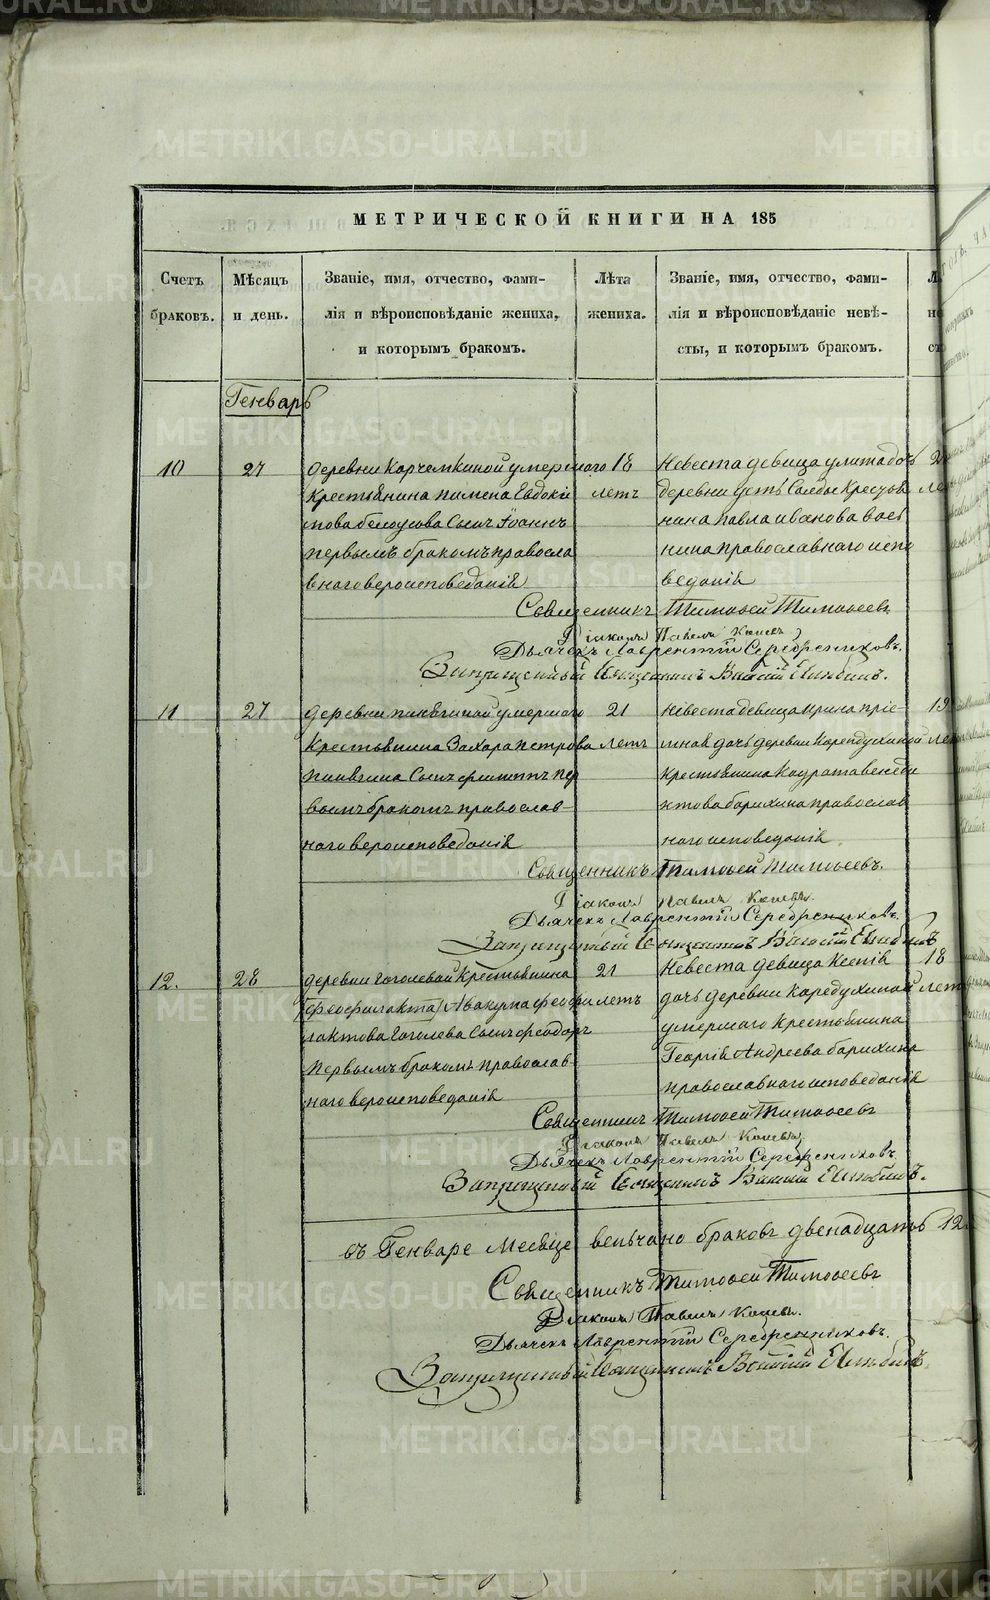 METRIKI.GASO-URAL.RU
МЕТРИЧЕСКОЙ КНИГИ НА 185
Счетъ браковъ.
Мѣсяцъ и день.
Званіе, имя, отчество, фами-
лія и вѣроисповѣданіе жениха,
и которымъ бракомъ.
Лѣта жениха.
Званіе, имя, отчество, фами-
лія и вѣроисповѣданіе невѣ-
сты, и которымъ бракомъ.
Генварь
10
27
деревни Карчемкиной умершаго
Крестьянина пимена Евдоки
мова белоусова Сынъ Іоаннъ
первымъ бракомъ правосла
внаго вероисповеданія
18
летъ
Невеста девица улита дочь
деревни усть Салды Крестья
нина павла иванова
нина православнаго испо
веданія
Священникъ Тимофей Тимофеевъ
Діаконъ Павелъ
Дьячекъ Лаврентій Серебренниковъ.
11
27
деревни пинягиной умершаго
Крестьянина Захара петрова
пинягина Сынъ филиппъ пер
вымъ бракомъ православ-
наго вероисповеданія
21
летъ
Невеста девица ирина пріе-
мная дочь деревни Карпдухиной
крестьянина Кодрата венеди
ктова барихина православ
наго исповеданія
19
Священникъ Тимофей Тимофеевъ.
Діаконъ Павелъ
Дьячекъ Лаврентій Серебренниковъ.
12.
28
деревни гоголевой Крестьянина
(феофилакта) Авакума феофи
лактова Гоголева Сынъ феодоръ
первымъ бракомъ православ-
наго вероисповеданія
21
летъ
Невеста девица Ксенія
дочь деревни Каредухиной
умершаго Крестьянина
Георгія Андреева барихина
православнаго исповеданія
18
лет
Священникъ Тимофей Тимофеевъ
Діаконъ Павелъ
Дьячекъ Лаврентій Серебренниковъ.
въ Генваре месяце венчано браковъ двенадцать 12
Священникъ Тимофей Тимофеевъ
Діаконъ Павелъ
Дьячекъ Лаврентій Серебренниковъ.